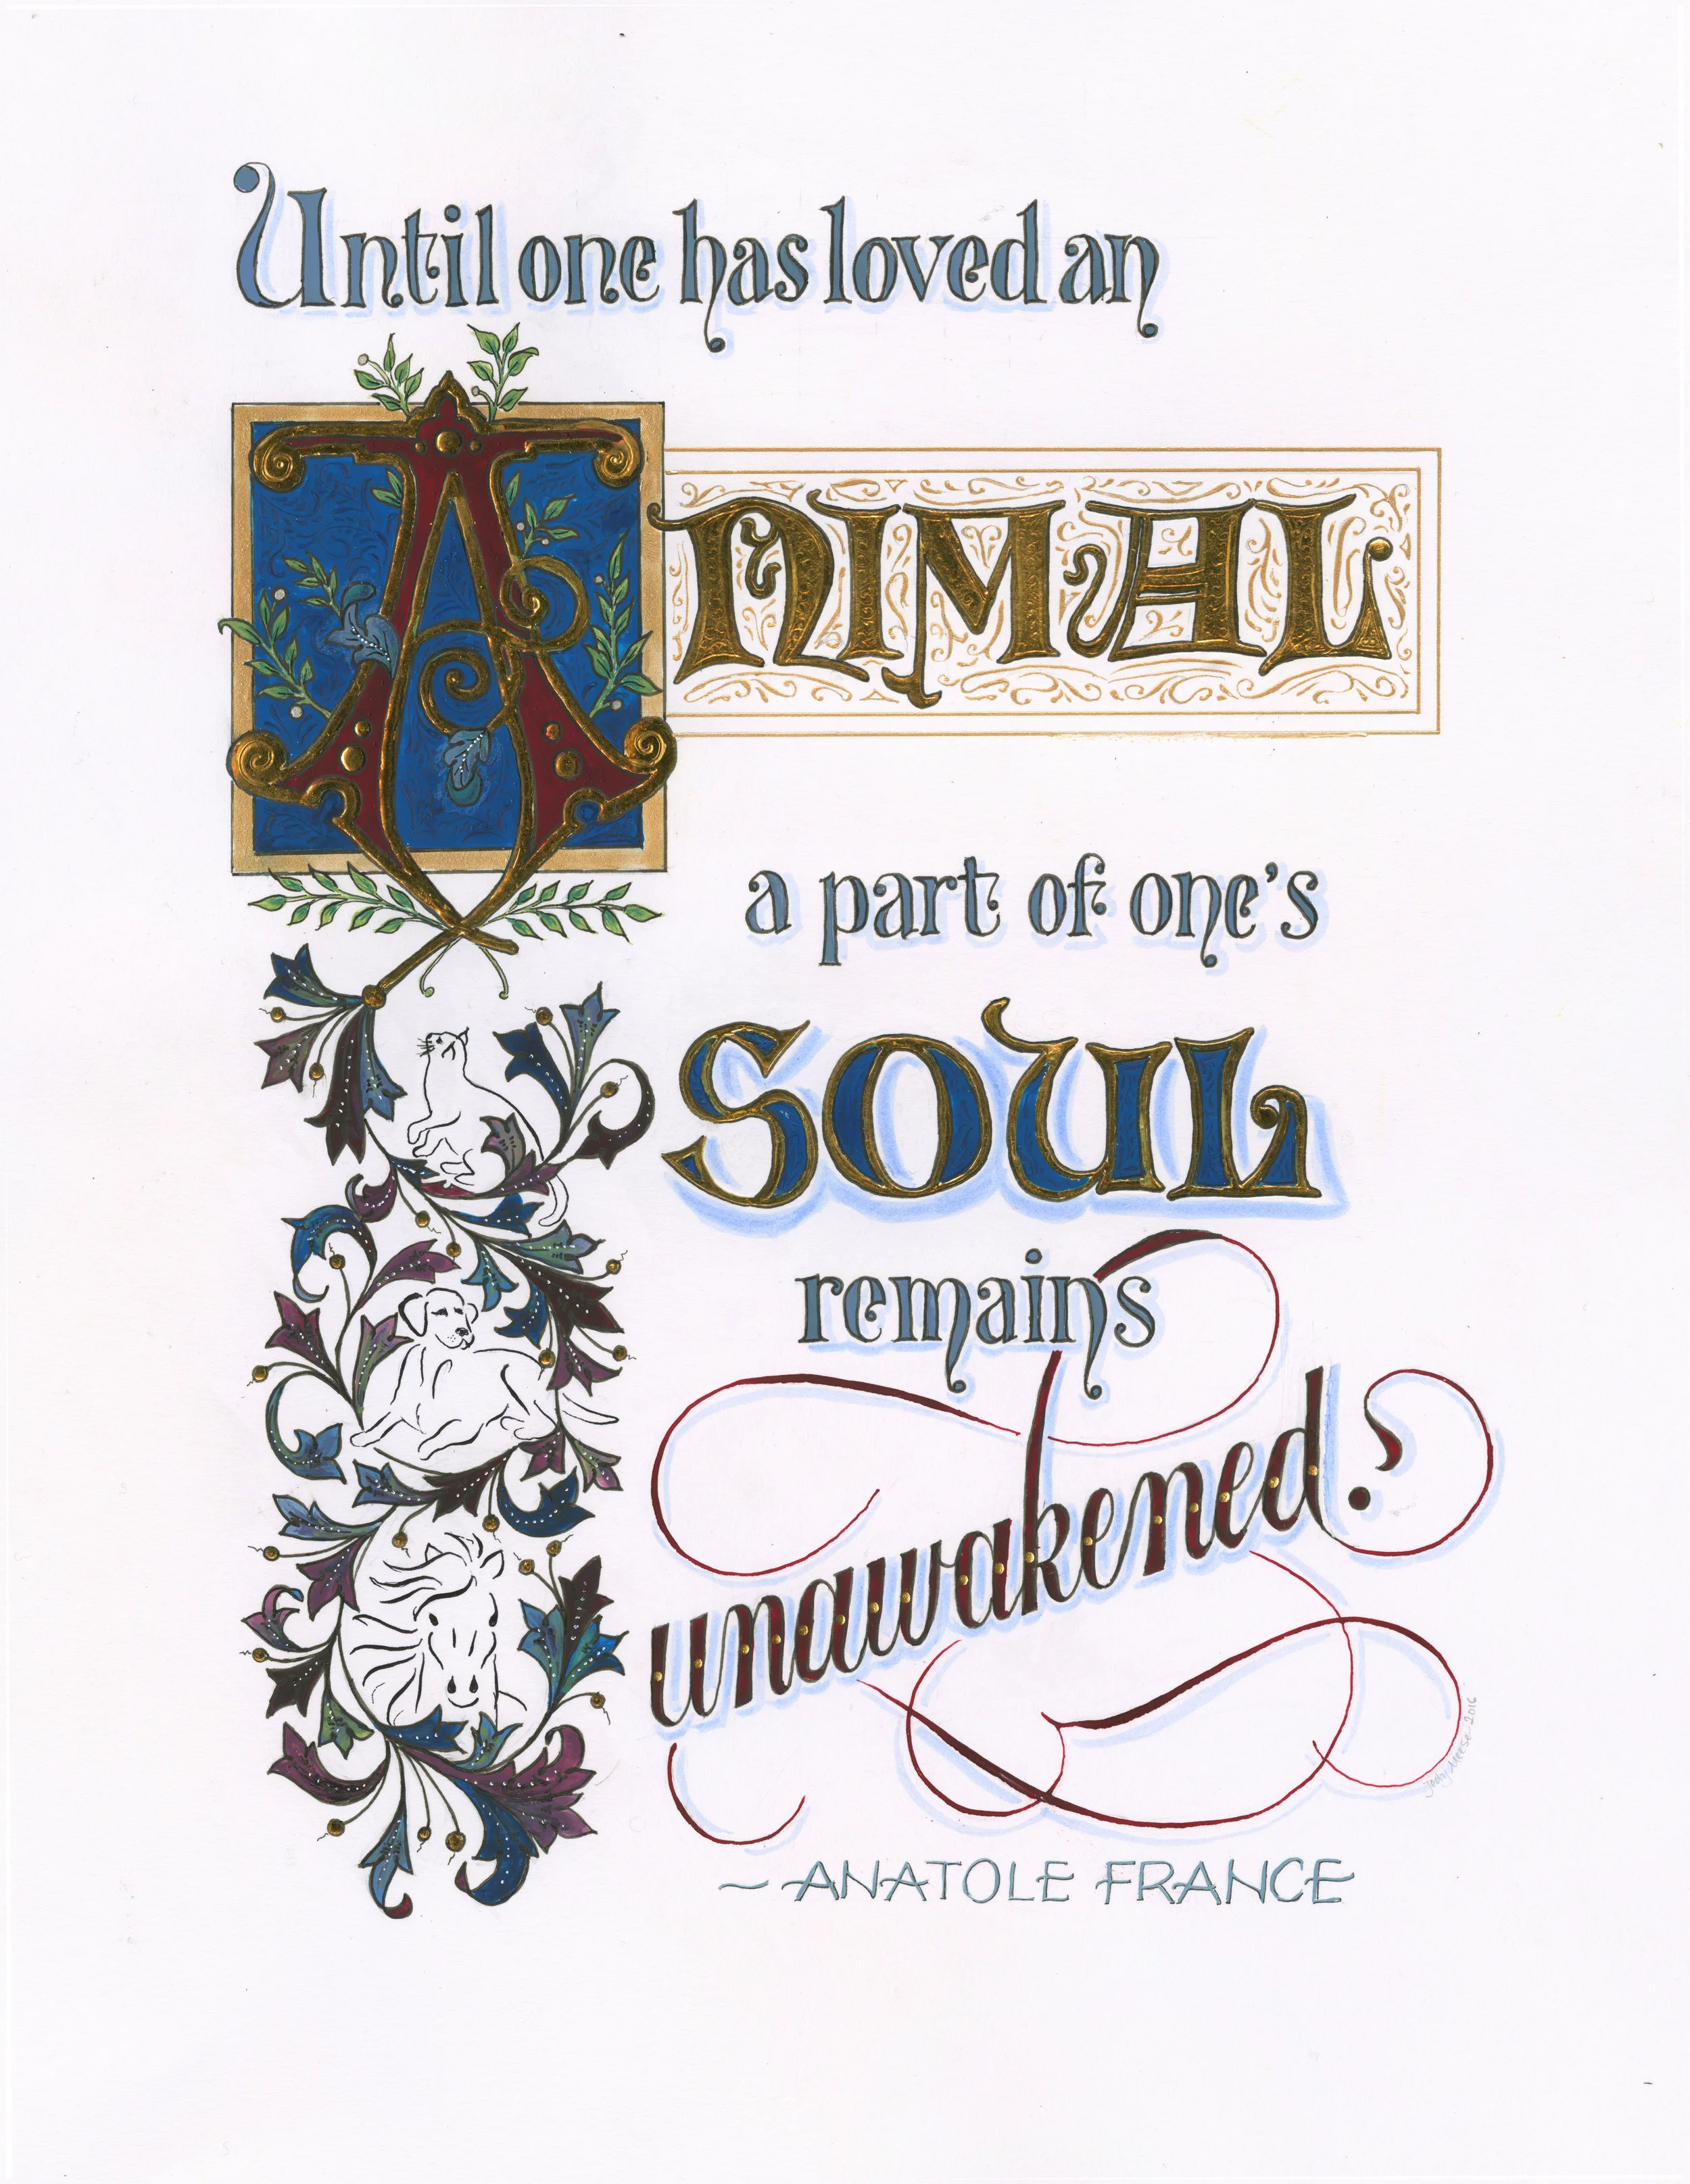 Until one has loved an
ANIMAL
a part of one's
SOUL
remains
unawakened.
~ANATOLE FRANCE
Jody Meese 2016